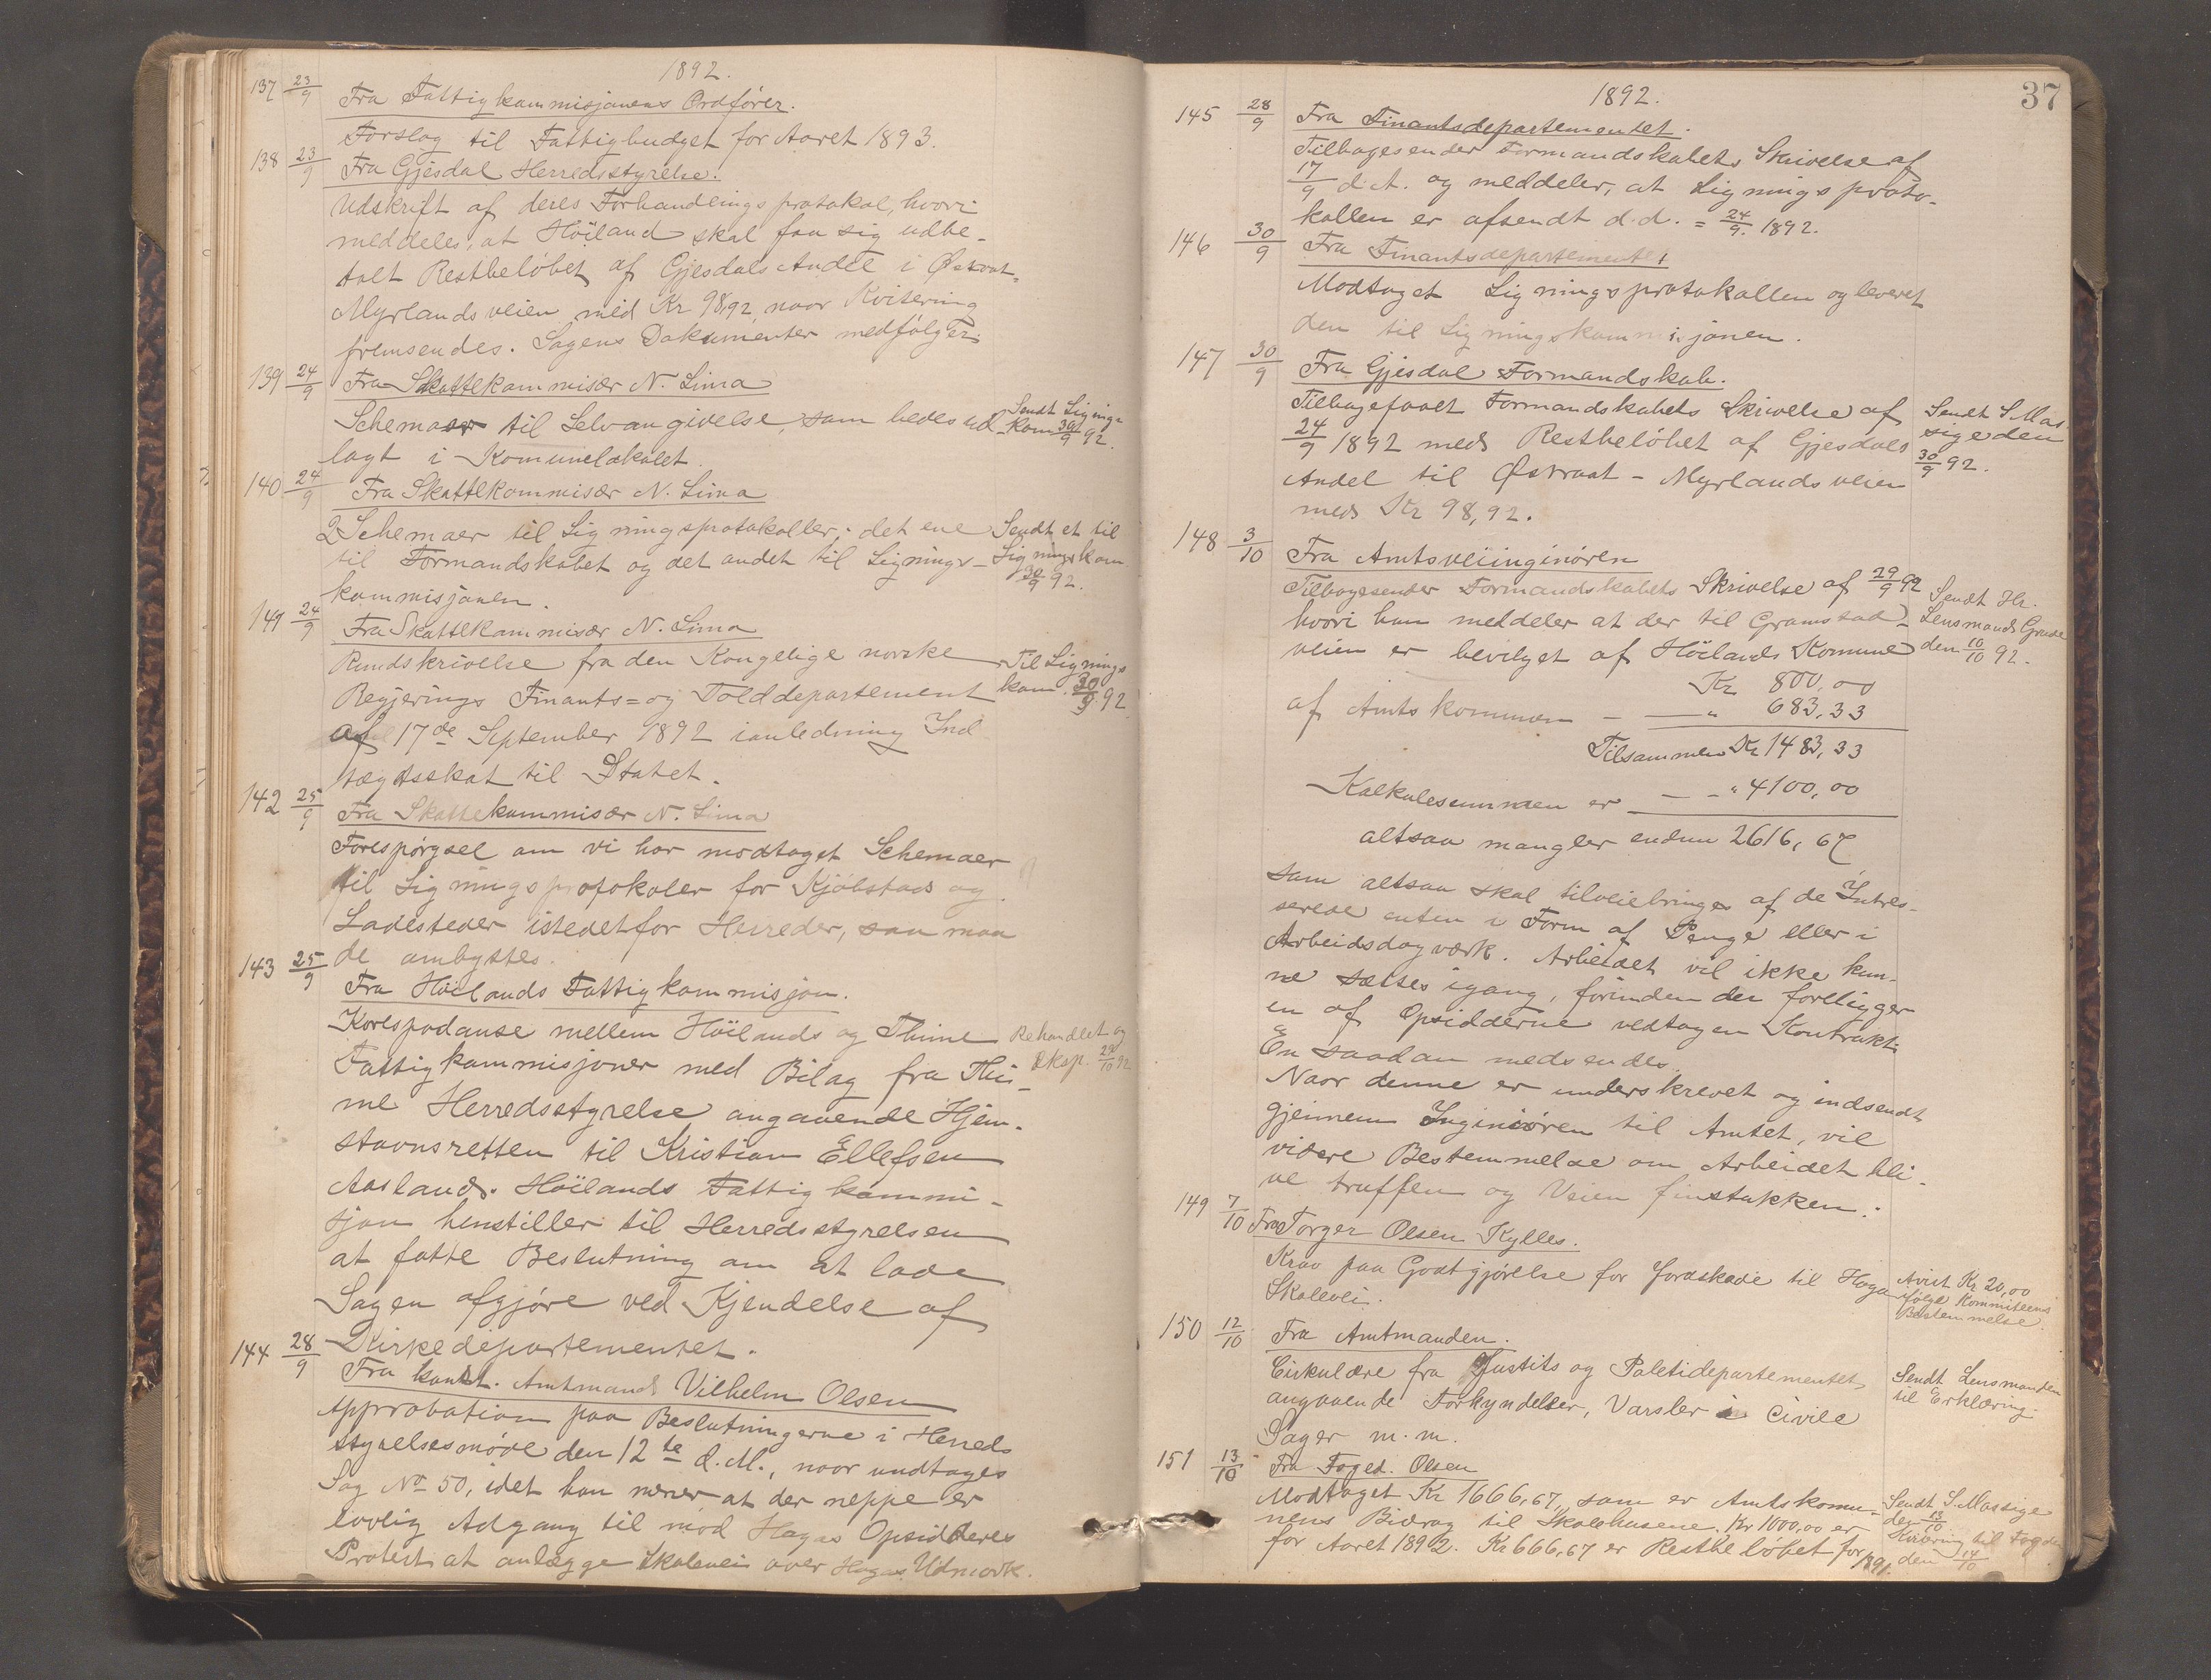 1892.
137 23/9 Fra Fattigkommisjonens Ordfører.
Forslag til Fattigbudget for Aaret 1893.
138 23/9 Fra Gjesdal Herredsstyrelse.
Udskrift af deres Forhandlingsprotokol, hvori
meddeles, at Höiland skal faa sig udbe-
talt Restbeløbet af Gjesdals Andel i Østraat-
Myrlandsveien med Kr 98,92, naar Kvitering
fremsendes. Sagens Dokumenter medfølger.
139 24/9 Fra Skattekommisær N. Lima
Schemaer til Selvangivelse, som bedes ud-
lagt i Komunelokalet.
Sendt Lignings
kom 30/9 92.
140 24/9 Fra Skattekommisær N. Lima
2 Schemaer til Ligningsprotokoller, det ene
til Formandskabet og det andet til Lignings-
kommisjonen.
Sendt et til
Ligningskom
30/9 92.
141 24/9 Fra Skattekommisær N. Lima
Rundskrivelse fra den Kongelige norske
Regjerings Finants= og Tolddepartement
af 17de September 1892 ianledning Ind
tægtsskat til Statet.
Til Lignings
kom. 30/9 92
142 25/9 Fra Skattekommisær N. Lima
Forespørgsel om vi har modtaget Schemaer
til Ligningsprotokoler for Kjöbstads og
Ladesteder istedetfor Herreder, saa maa
de ombyttes.
143 25/9 Fra Höilands Fattigkommisjon.
Korespodanse mellem Höilands og Thime
Fattigkommisjoner med Bilag fra Thi-
me Herredsstyrelse angaaende Hjem-
stavnsretten til Kristian Ellefsen
Aasland. Höilands Fattigkommi-
sjon henstiller til Herredsstyrelsen
at fatte Beslutning om at lade
Sagen afgjöre ved Kjendelse af
Kirkedepartementet.
Behandlet og
Eksp. 29/10 92
144 28/9 Fra konst. Amtmand Vilhelm Olsen
Approbation paa Beslutningerne i Herreds
styrelsesmöde den 12te d.M., naar undtages
Sag No 50, idet han mener, at der neppe er
lovlig Adgang til mod Hagas Opsidderes
Protest at anlægge Skolevei over Hagas Udmark.
37
1892.
145 28/9 Fra Finantsdepartementet.
Tilbagesender Formandskabets Skrivelse af
17/9 d.A. og meddeler, at Ligningsproto-
kollen er afsendt d.d. = 24/9. 1892.
146 30/9 Fra Finantsdepartementet
Modtaget Ligningsprotokollen og leveret
den til Ligningskommisjonen.
147 30/9 Fra Gjesdal Formandskab.
Tilbagefaaet Formandskabets Skrivelse af
24/9 1892 med Restbelöbet af Gjesdals
Andel til Østraat - Myrlandsveien
med Kr 98,92.
Sendt S Mas
sige den
30/9 92.
148 3/10 Fra Amtsveiinginören
Tilbagesender Formandskabets Skrivelse af 29/9 92
hvori han meddeler at der til Gramstad-
veien er bevilget af Höilands Komune
Kr 800,00
af Amtskommunen — — " 683,33
Tilsammen Kr 1483,33
Kalkulesummen er — - " 4100,00
altsaa mangler endnu 2616,67
som altsaa skal tilveiebringes af de Intres-
serede enten i Form af Penge eller i
Arbeidsdagværk. Arbeidet vil ikke kun-
ne sættes igang, förinden der foreligger
en af Opsidderne vedtagen Kontrakt.
En saadan medsendes.
Naar denne er underskrevet og indsendt
gjennem Inginiören til Amtet, vil
videre Bestemmelse om Arbeidet bli-
ve truffen og Veien finstukken.
Sendt Hr.
Lensmand Grude
den 10/10 92.
149 7/10 Fra Torger Olsen Kylles.
Krav paa Godtgjörelse for Jordskade til Haga
Skolevei.
Avist Kr 20,00
ifölge Kommiteens
Bestemmelse.
150 12/10 Fra Amtmanden.
Cirkulære fra Justits og Politidepartementet
angaaende Forkyndelser, Varsler i Civile
Sager m.m.
Sendt Lensmanden
til Erklæring.
151 13/10 Fra Foged. Olsen
Modtaget Kr 1666,67, som er Amtskomu-
nens Bidrag til Skolehusene. Kr 1000,00 er
for Aaret 1892. Kr 666,67 er Restbelöbet for 1891.
Sendt S Massige
den 13/10
Kvitering til Fogden
den 14/10